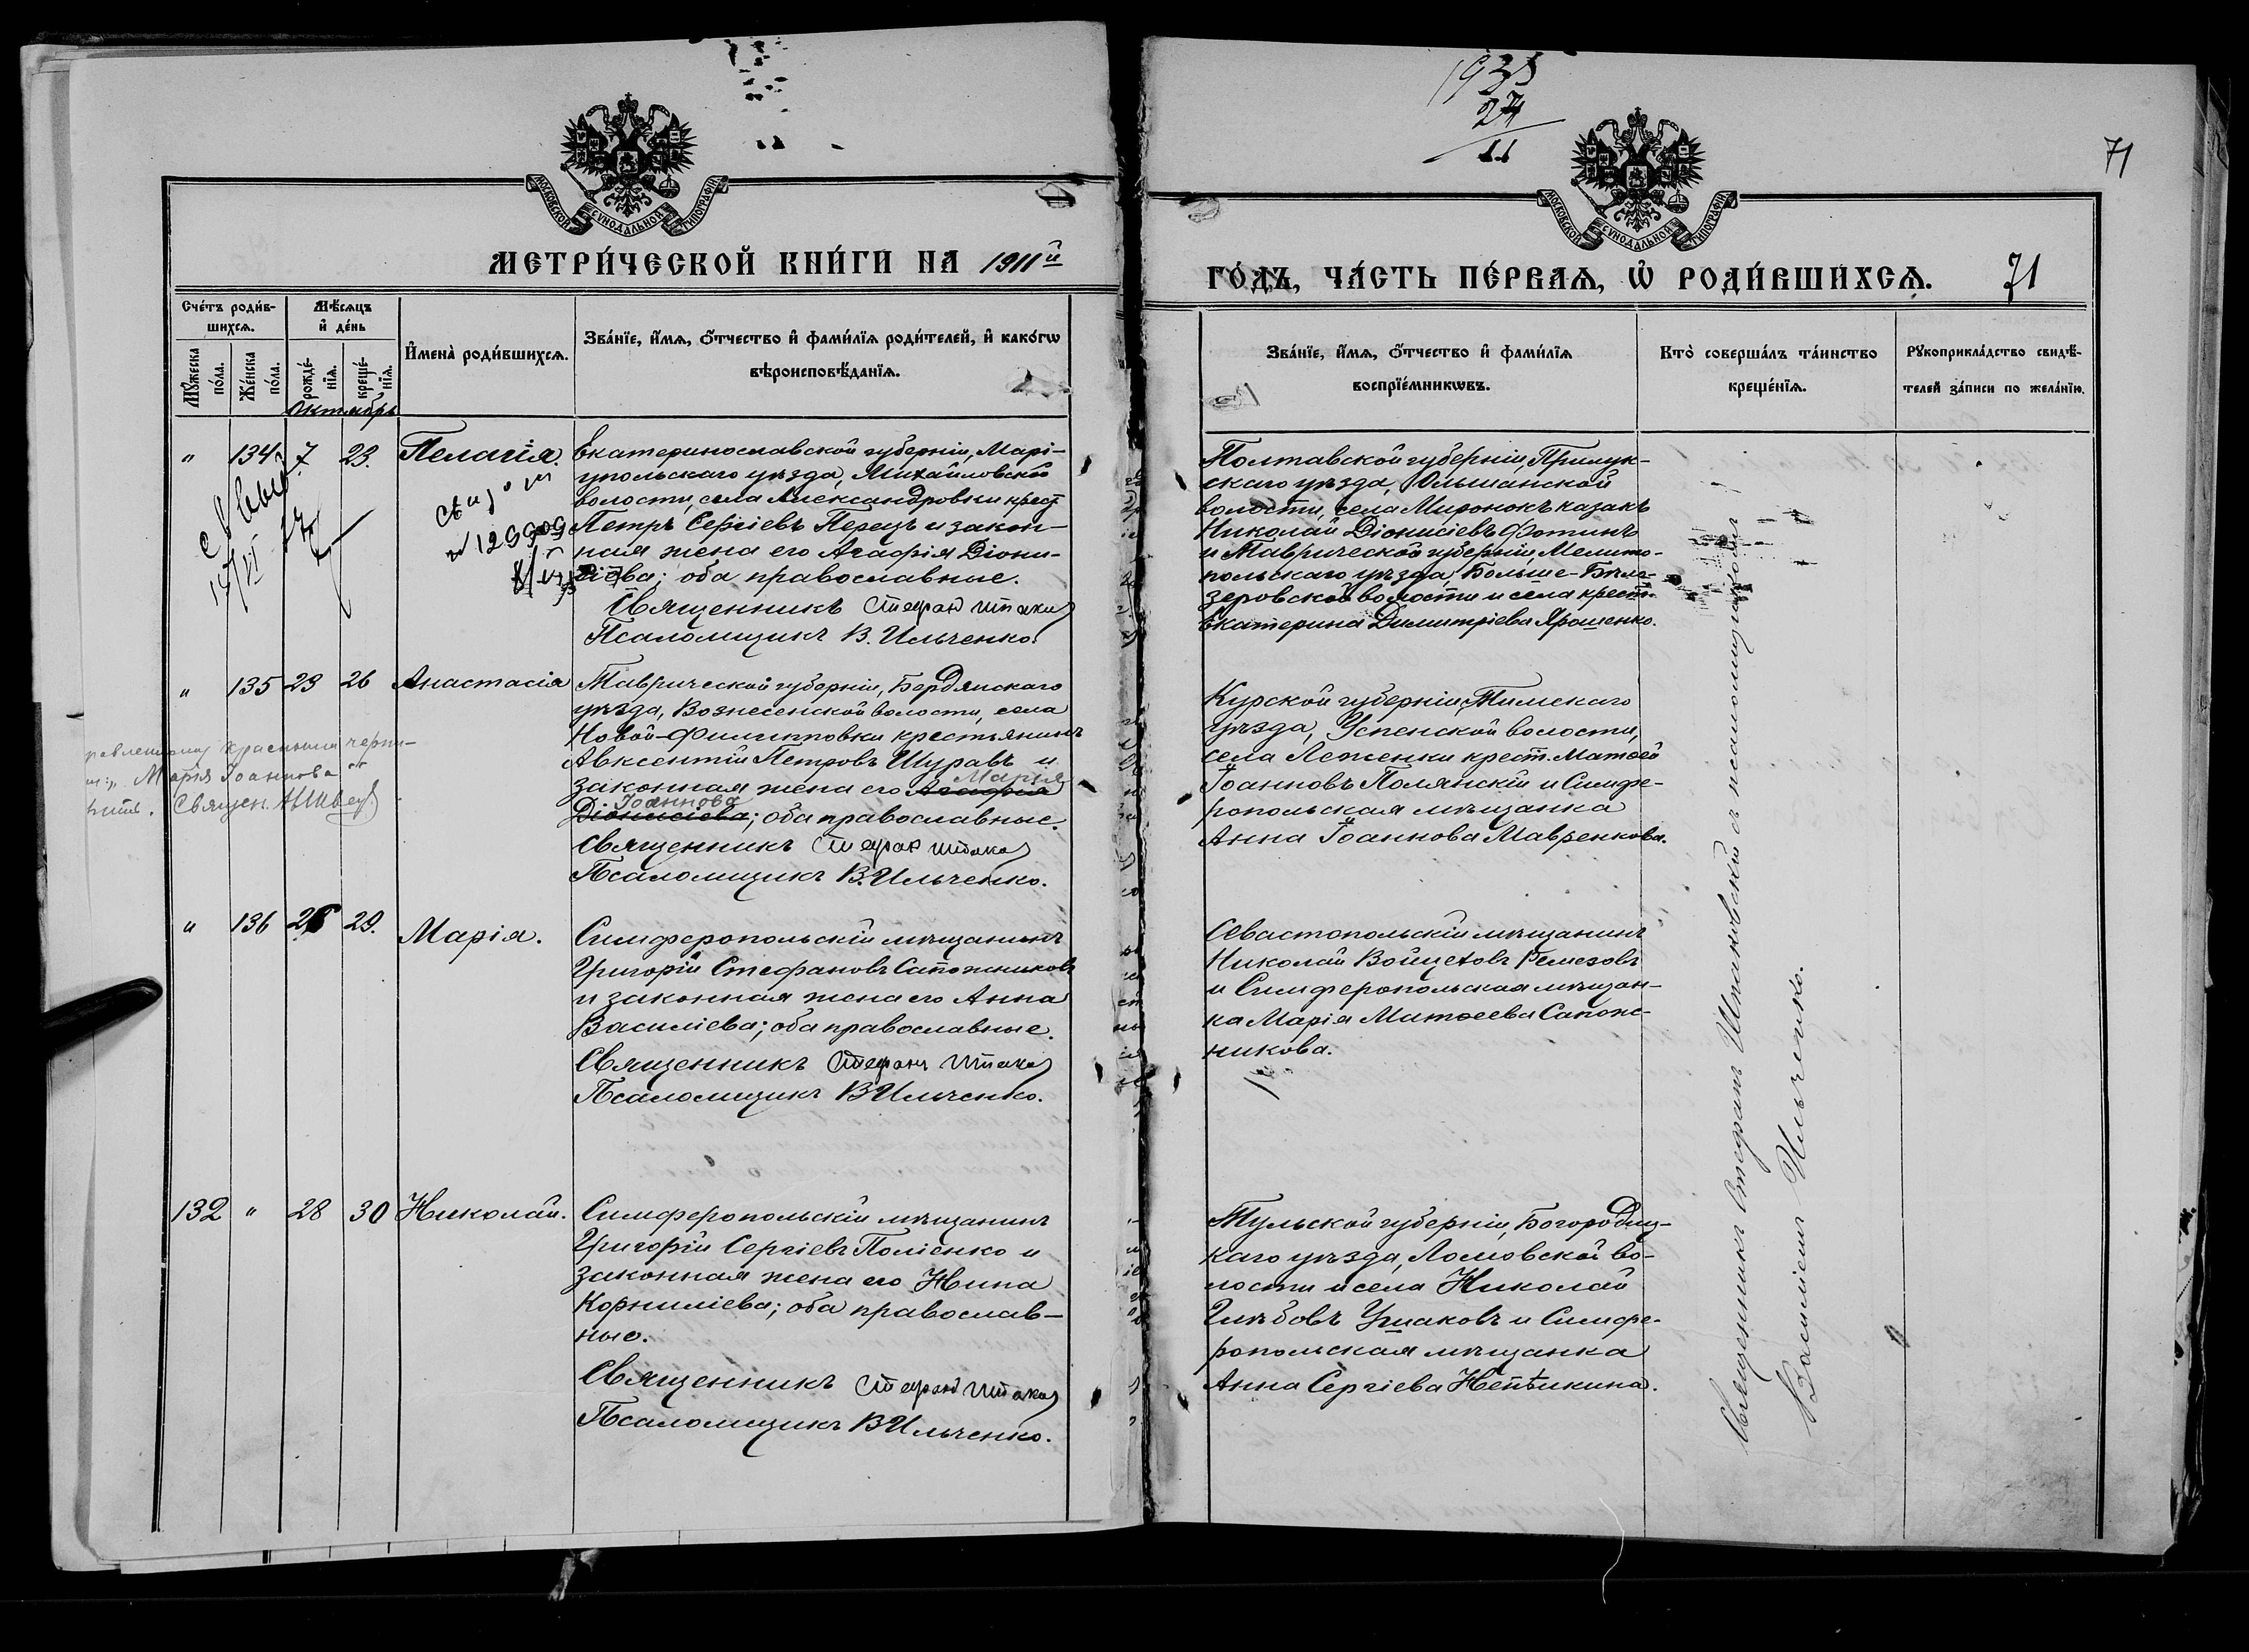 1935
27
11
71
МОСКОВСКОЙ СѴНОДАЛЬНОЙ ТИПОГРАФІИ
МОСКОВСКОЙ СѴНОДАЛЬНОЙ ТИПОГРАФІИ
МЕТРИ́ЧЕСКОЙ КНИ́ГИ НА 1911й
ГО́ДЪ, ЧА́СТЬ ПЕ́РВАЯ, Ѡ РОДИ́ВШИХСЯ. 71
Сче́тъ роди́в-
шихся.
Мѣ́сяцъ
и де́нь
Му́жеска
по́ла.
Же́нска
по́ла.
рожде́-
нїя.
креще́-
нїя.
Имена̀ роди́вшихся.
Зва́нїе, и́мя, о́тчество и фами́лїя роди́телей, и како́гѡ
вѣроисповѣ́данїя.
Зва́нїе, и́мя, о́тчество и фами́лїя
воспрїе́мникѡвъ.
Кто̀ соверша́лъ та́инство
креще́нїя.
Рукоприкла́дство свидѣ́-
телей за́писи по жела́нїю.
Октябрь
" 134 7 23. Пелагія.
Екатеринославской губерніи, Марі-
упольскаго уѣзда, Михайловской
волости, села Александровки крест.
Петръ Сергіевъ Перецъ и закон-
ная жена его Агафія Діони-
сіева; оба православные.
Священникъ Стефан
Псаломщикъ В. Ильченко.
№ 129909
Полтавской губерніи, Прилук-
скаго уѣзда, Ольшанской
волости, села Миронокъ казакъ
Николай Діонисіевъ Фотинъ
и Таврической губерніи, Мелито-
польскаго уѣзда, Больше-Бѣло-
зеровской волости и села крест.
Екатерина Димитріева Ярошенко.
" 135 23 26 Анастасія
Таврической губерніи, Бердянскаго
уѣзда, Вознесенской волости, села
Новой-Филипповки крестьянинъ
Авксентій Петровъ Шуравъ и
законная жена его Агафія Марія
Діонисіева Іоаннова; оба православные.
Священникъ Стефан
Псаломщикъ В. Ильченко.
красными черни-
Марія Іоаннова
Священ.
Курской губерніи, Тимскаго
уѣзда, Успенской волости,
села Леженки крест. Матѳей
Іоанновъ Полянскій и Симфе-
ропольская мѣщанка
Анна Іоаннова Мавренкова.
" 136 26 29. Марія.
Симферопольскій мѣщанинъ
Григорій Стефановъ Сапожниковъ
и законная жена его Анна
Василіева; оба православные.
Священникъ Стефанъ
Псаломщикъ В Ильченко.
Севастопольскій мѣщанинъ
Николай Войцеховъ Ремезовъ
и Симферопольская мѣщан-
ка Марія Матѳеева Сапож-
никова.
132 " 28 30 Николай.
Симферопольскій мѣщанинъ
Григорій Сергіевъ Поліенко и
законная жена его Нина
Корниліева; оба православ-
ные.
Священникъ Стефан
Псаломщикъ В Ильченко.
Тульской губерніи, Богородиц-
каго уѣзда, Ломовской во-
лости и села Николай
Глѣбовъ Ушаковъ и Симфе-
ропольская мѣщанка
Анна Сергіева Непѣикина.
Священникъ Стефанъ съ псаломщикомъ
Василіемъ Ильченко.